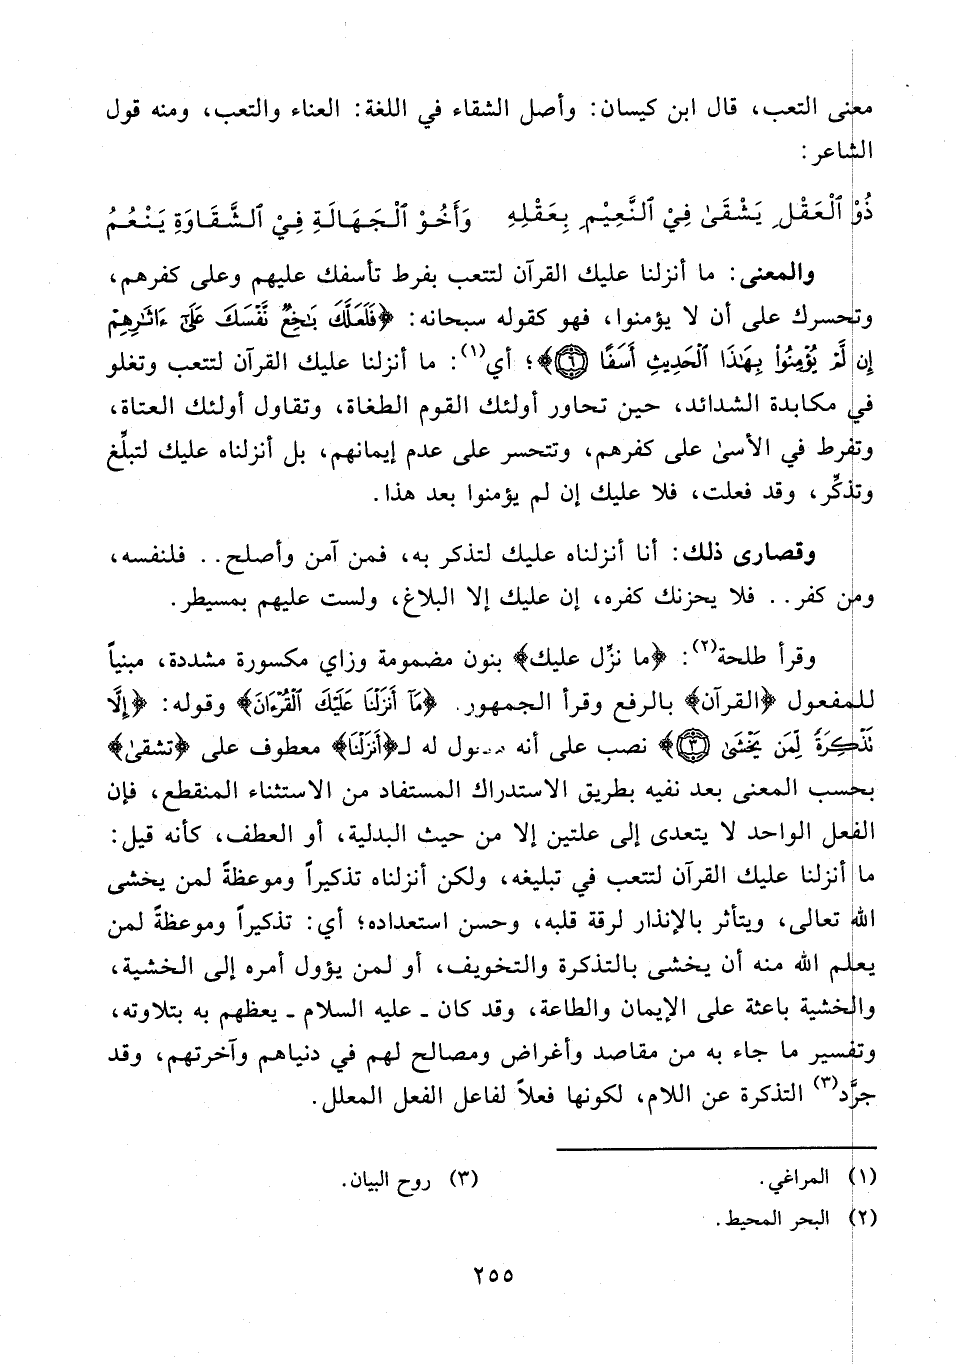 معنى التعب، قال ابن كيسان: وأصل الشقاء في اللغة: العناء والتعب، ومنه قول
الشاعر:
ذُوْ ٱلْعَقْلِ يَشْقَىٰ فِيْ ٱلنَّعِيْمِ بِعَقْلِهِ وَأَخُوْ ٱلْجَهَالَةِ فِيْ ٱلشَّقَاوَةِ يَنْعُمُ
والمعنى: ما أنزلنا عليك القرآن لتتعب بفرط تأسفك عليهم وعلى كفرهم،
وتحسرك على أن لا يؤمنوا، فهو كقوله سبحانه: ﴿فَلَعَلَّكَ بَٰخِعٌ نَّفْسَكَ عَلَىٰٓ ءَاثَٰرِهِمْ
إِن لَّمْ يُؤْمِنُوا۟ بِهَٰذَا ٱلْحَدِيثِ أَسَفًا ۝٦﴾؛ أي(١): ما أنزلنا عليك القرآن لتتعب وتغلو
في مكابدة الشدائد، حين تحاور أولئك القوم الطغاة، وتقاول أولئك العتاة،
وتفرط في الأسىٰ على كفرهم، وتتحسر على عدم إيمانهم، بل أنزلناه عليك لتبلِّغ
وتذكِّر، وقد فعلت، فلا عليك إن لم يؤمنوا بعد هذا.
وقصارى ذلك: أنا أنزلناه عليك لتذكر به، فمن آمن وأصلح.. فلنفسه،
ومن كفر.. فلا يحزنك كفره، إن عليك إلا البلاغ، ولست عليهم بمسيطر.
وقرأ طلحة(٢): ﴿ما نزِّل عليك﴾ بنون مضمومة وزاي مكسورة مشددة، مبنياً
للمفعول ﴿القرآن﴾ بالرفع وقرأ الجمهور. ﴿مَآ أَنزَلْنَا عَلَيْكَ ٱلْقُرْءَانَ﴾ وقوله: ﴿إِلَّا
تَذْكِرَةً لِّمَن يَخْشَىٰ ۝٣﴾ نصب على أنه له لـ﴿أَنزَلْنَا﴾ معطوف على ﴿تشقىٰ﴾
بحسب المعنى بعد نفيه بطريق الاستدراك المستفاد من الاستثناء المنقطع، فإن
الفعل الواحد لا يتعدى إلى علتين إلا من حيث البدلية، أو العطف، كأنه قيل:
ما أنزلنا عليك القرآن لتتعب في تبليغه، ولكن أنزلناه تذكيراً وموعظةً لمن يخشى
الله تعالى، ويتأثر بالإنذار لرقة قلبه، وحسن استعداده؛ أي: تذكيراً وموعظةً لمن
يعلم الله منه أن يخشى بالتذكرة والتخويف، أو لمن يؤول أمره إلى الخشية،
والخشية باعثة على الإيمان والطاعة، وقد كان ـ عليه السلام ـ يعظهم به بتلاوته،
وتفسير ما جاء به من مقاصد وأغراض ومصالح لهم في دنياهم وآخرتهم، وقد
جرَّد(٣) التذكرة عن اللام، لكونها فعلاً لفاعل الفعل المعلل.
(١) المراغي.
(٢) البحر المحيط.
(٣) روح البيان.
٢٥٥